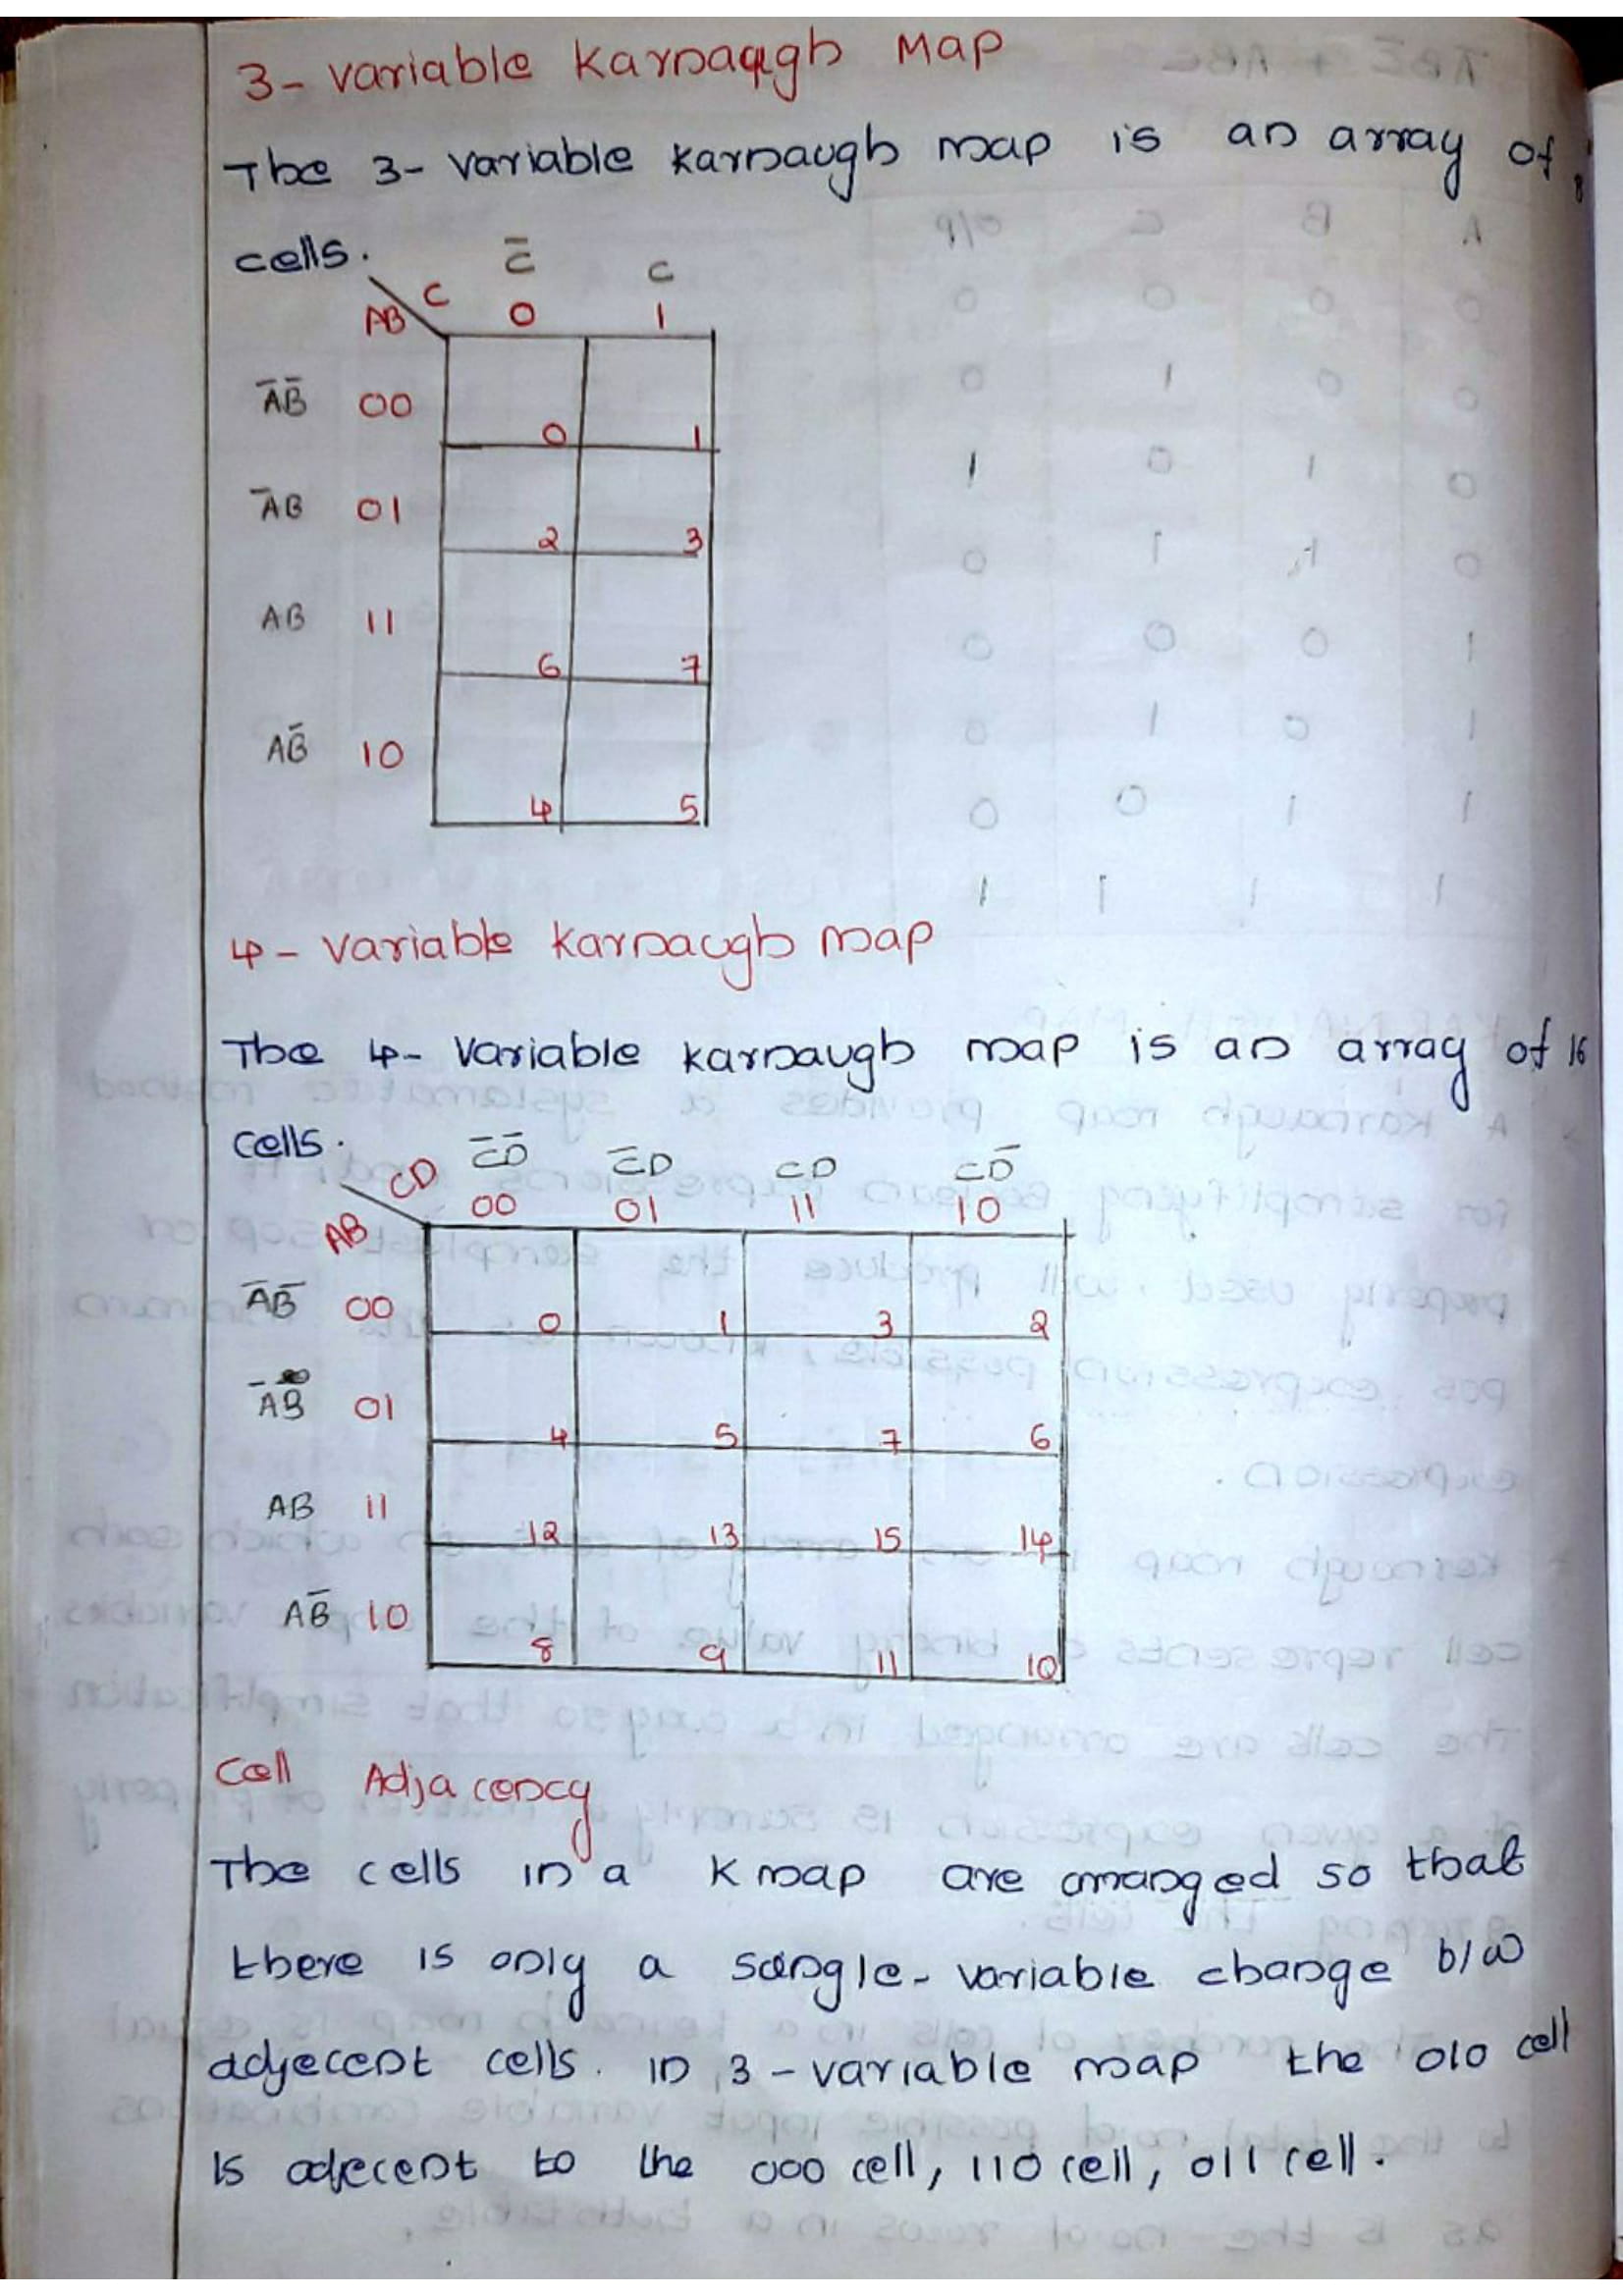 3- Variable Karnaugh Map
The 3- variable karnaugh map is an array of 8
cells.
C̅ C
C 0 1
AB
A̅B̅ 00 0 1
A̅B 01 2 3
AB 11 6 7
AB̅ 10 4 5
4- Variable karnaugh map
The 4- Variable karnaugh map is an array of 16
cells.
C̅D̅ C̅D CD CD̅
CD 00 01 11 10
AB
A̅B̅ 00 0 1 3 2
A̅B 01 4 5 7 6
AB 11 12 13 15 14
AB̅ 10 8 9 11 10
Cell Adjacency
The cells in a K map are arranged so that
there is only a single-variable change b/w
adjecent cells. in 3-variable map the 010 cell
is adjecent to the 000 cell, 110 cell, 011 cell.